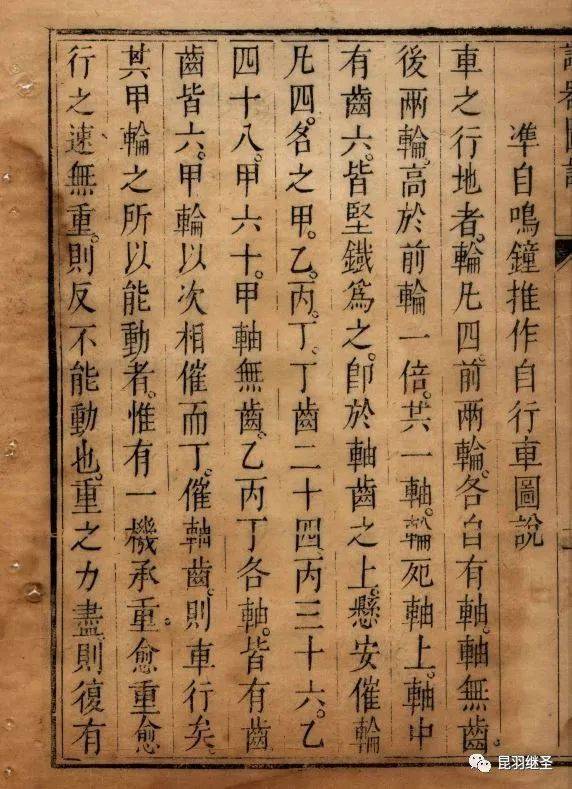 諸器圖說
凖自鳴鐘推作自行車圖說
車之行地者。輪凡四。前兩輪。各自有軸。軸無齒。
後兩輪。高於前輪一倍。共一軸。輪死軸上。軸中
有齒六。皆堅鐵爲之。卽於軸齒之上。懸安催輪
凡四。名之甲。乙。丙。丁。丁齒二十四。丙三十六。乙
四十八。甲六十。甲軸無齒。乙丙丁各軸。皆有齒
齒皆六。甲輪以次相催而丁。催軸齒。則車行矣。
其甲輪之所以能動者。惟有一機承重愈重愈
行之速無重。則反不能動也。重之力盡則復有
昆羽继圣